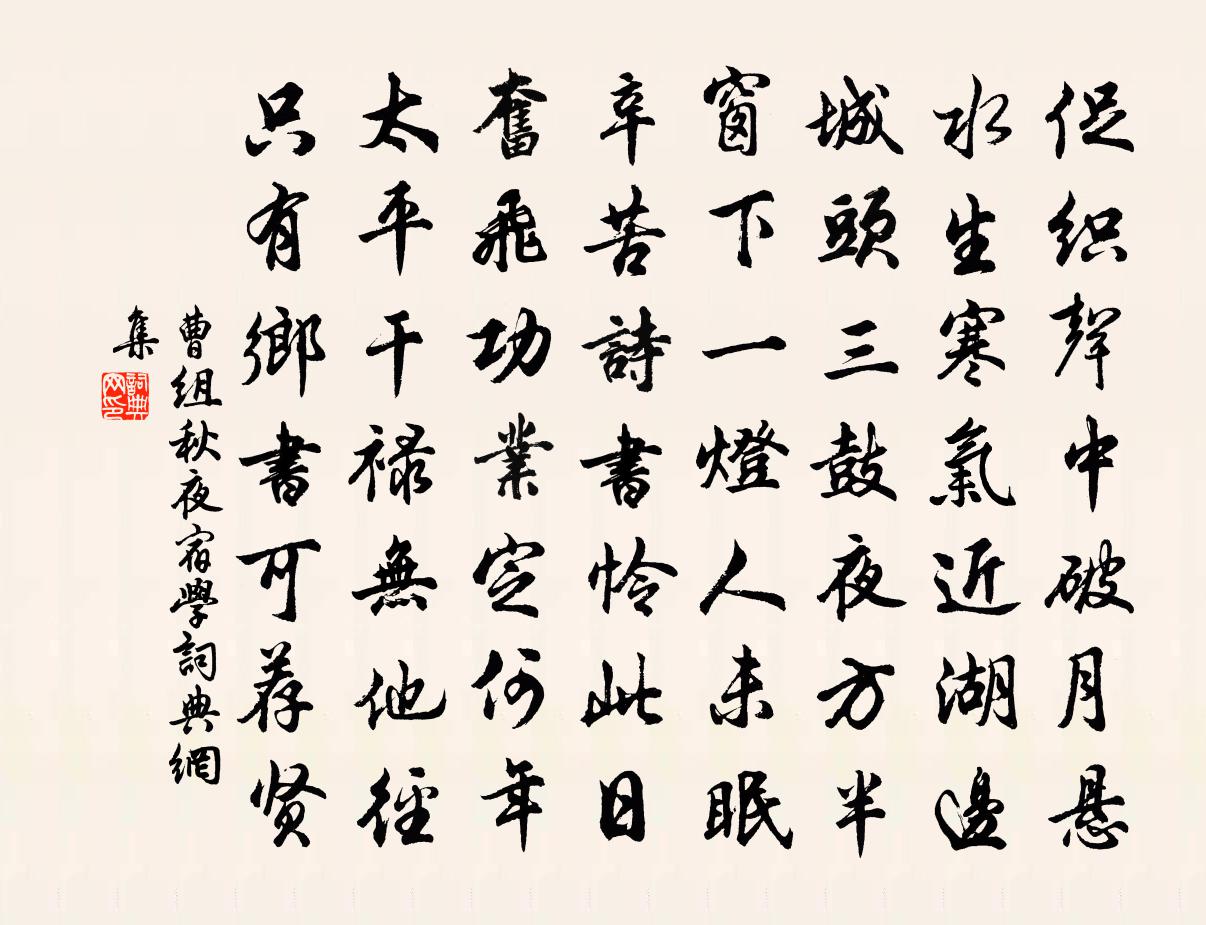 促织聲中破月悬
水生寒氣近湖邊
城頭三鼓夜方半
窗下一燈人未眠
辛苦詩書怜此日
奮飛功業定何年
太平干禄無他徑
只有鄉書可荐贤
曹组秋夜宿學詞典網
集
詞典网印